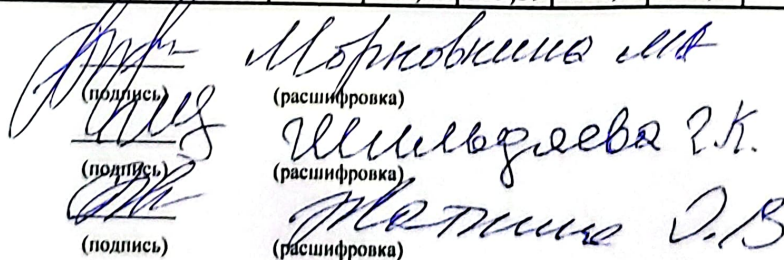 Морковкина МА
(подпись) (расшифровка)
Шильдяева Г.К.
(подпись) (расшифровка)
О.В
(подпись) (расшифровка)